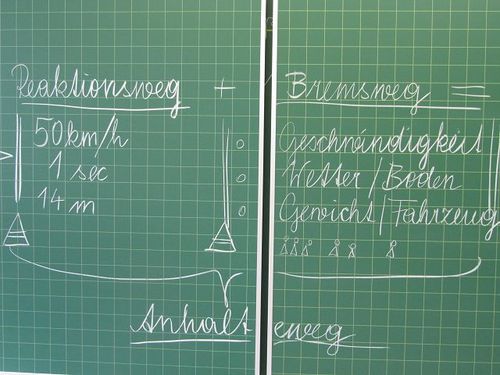 Reaktionsweg + Bremsweg =
50 km/h
1 sec
14 m
Geschwindigkeit
Wetter / Boden
Gewicht / Fahrzeug
Anhalteweg